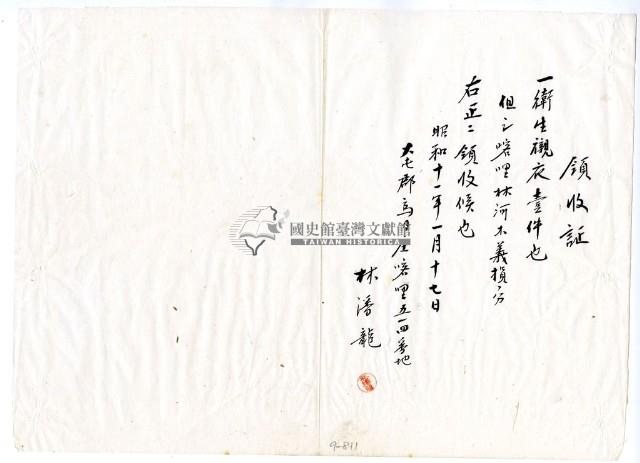 領收証
一衛生襯衣壹件也
但シ喀哩林河木義損分
右正ニ領收候也
昭和十一年一月十七日
大屯郡烏日庄喀哩五一四番地
林潘龍
國史館臺灣文獻館
TAIWAN HISTORICA
9-811